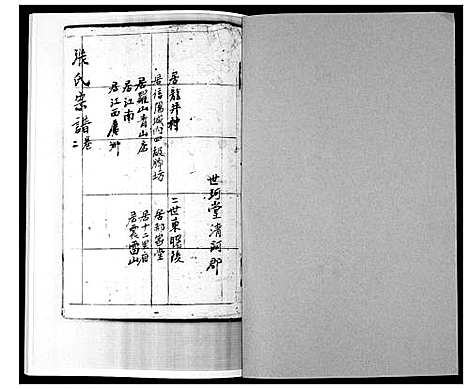 世珂堂清河郡
居龍井村
居信陽城內四級牌坊
居羅山青山店
居江南
居江西廣鄉
二世東賜陵
居郝家堂
居十二里廟
居震雷山
張氏宗譜 卷二